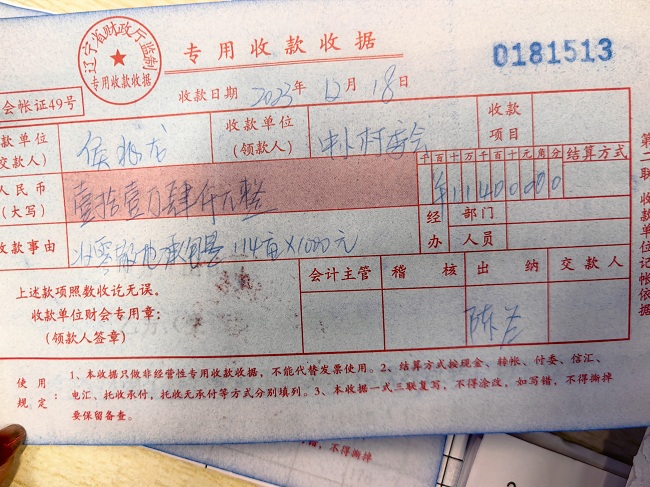 辽宁省财政厅监制
专用收款收据
专用收款收据
0181513
收款日期 2023年 12月 18日
会帐证49号
款单位 侯兆龙 收款单位 中小村委会 收款
交款人) (领款人) 项目
人民币 壹拾壹万肆仟元整 千百十万千百十元角分 结算方式
(大写) ¥11400000
经办 部门
人员
收款事由 114亩×1000元
上述款项照数收讫无误。 会计主管 稽核 出纳 交款人
收款单位财会专用章:
(领款人签章) 陈
第二联 收款单位记帐依据
使用规定: 1、本收据只做非经营性专用收款收据,不能代替发票使用。2、结算方式按现金、转帐、付委、信汇、
电汇、托收承付,托收无承付等方式分别填列。3、本收据一式三联复写,不得涂改,如写错,不得撕掉
要保留备查。
不得撕掉